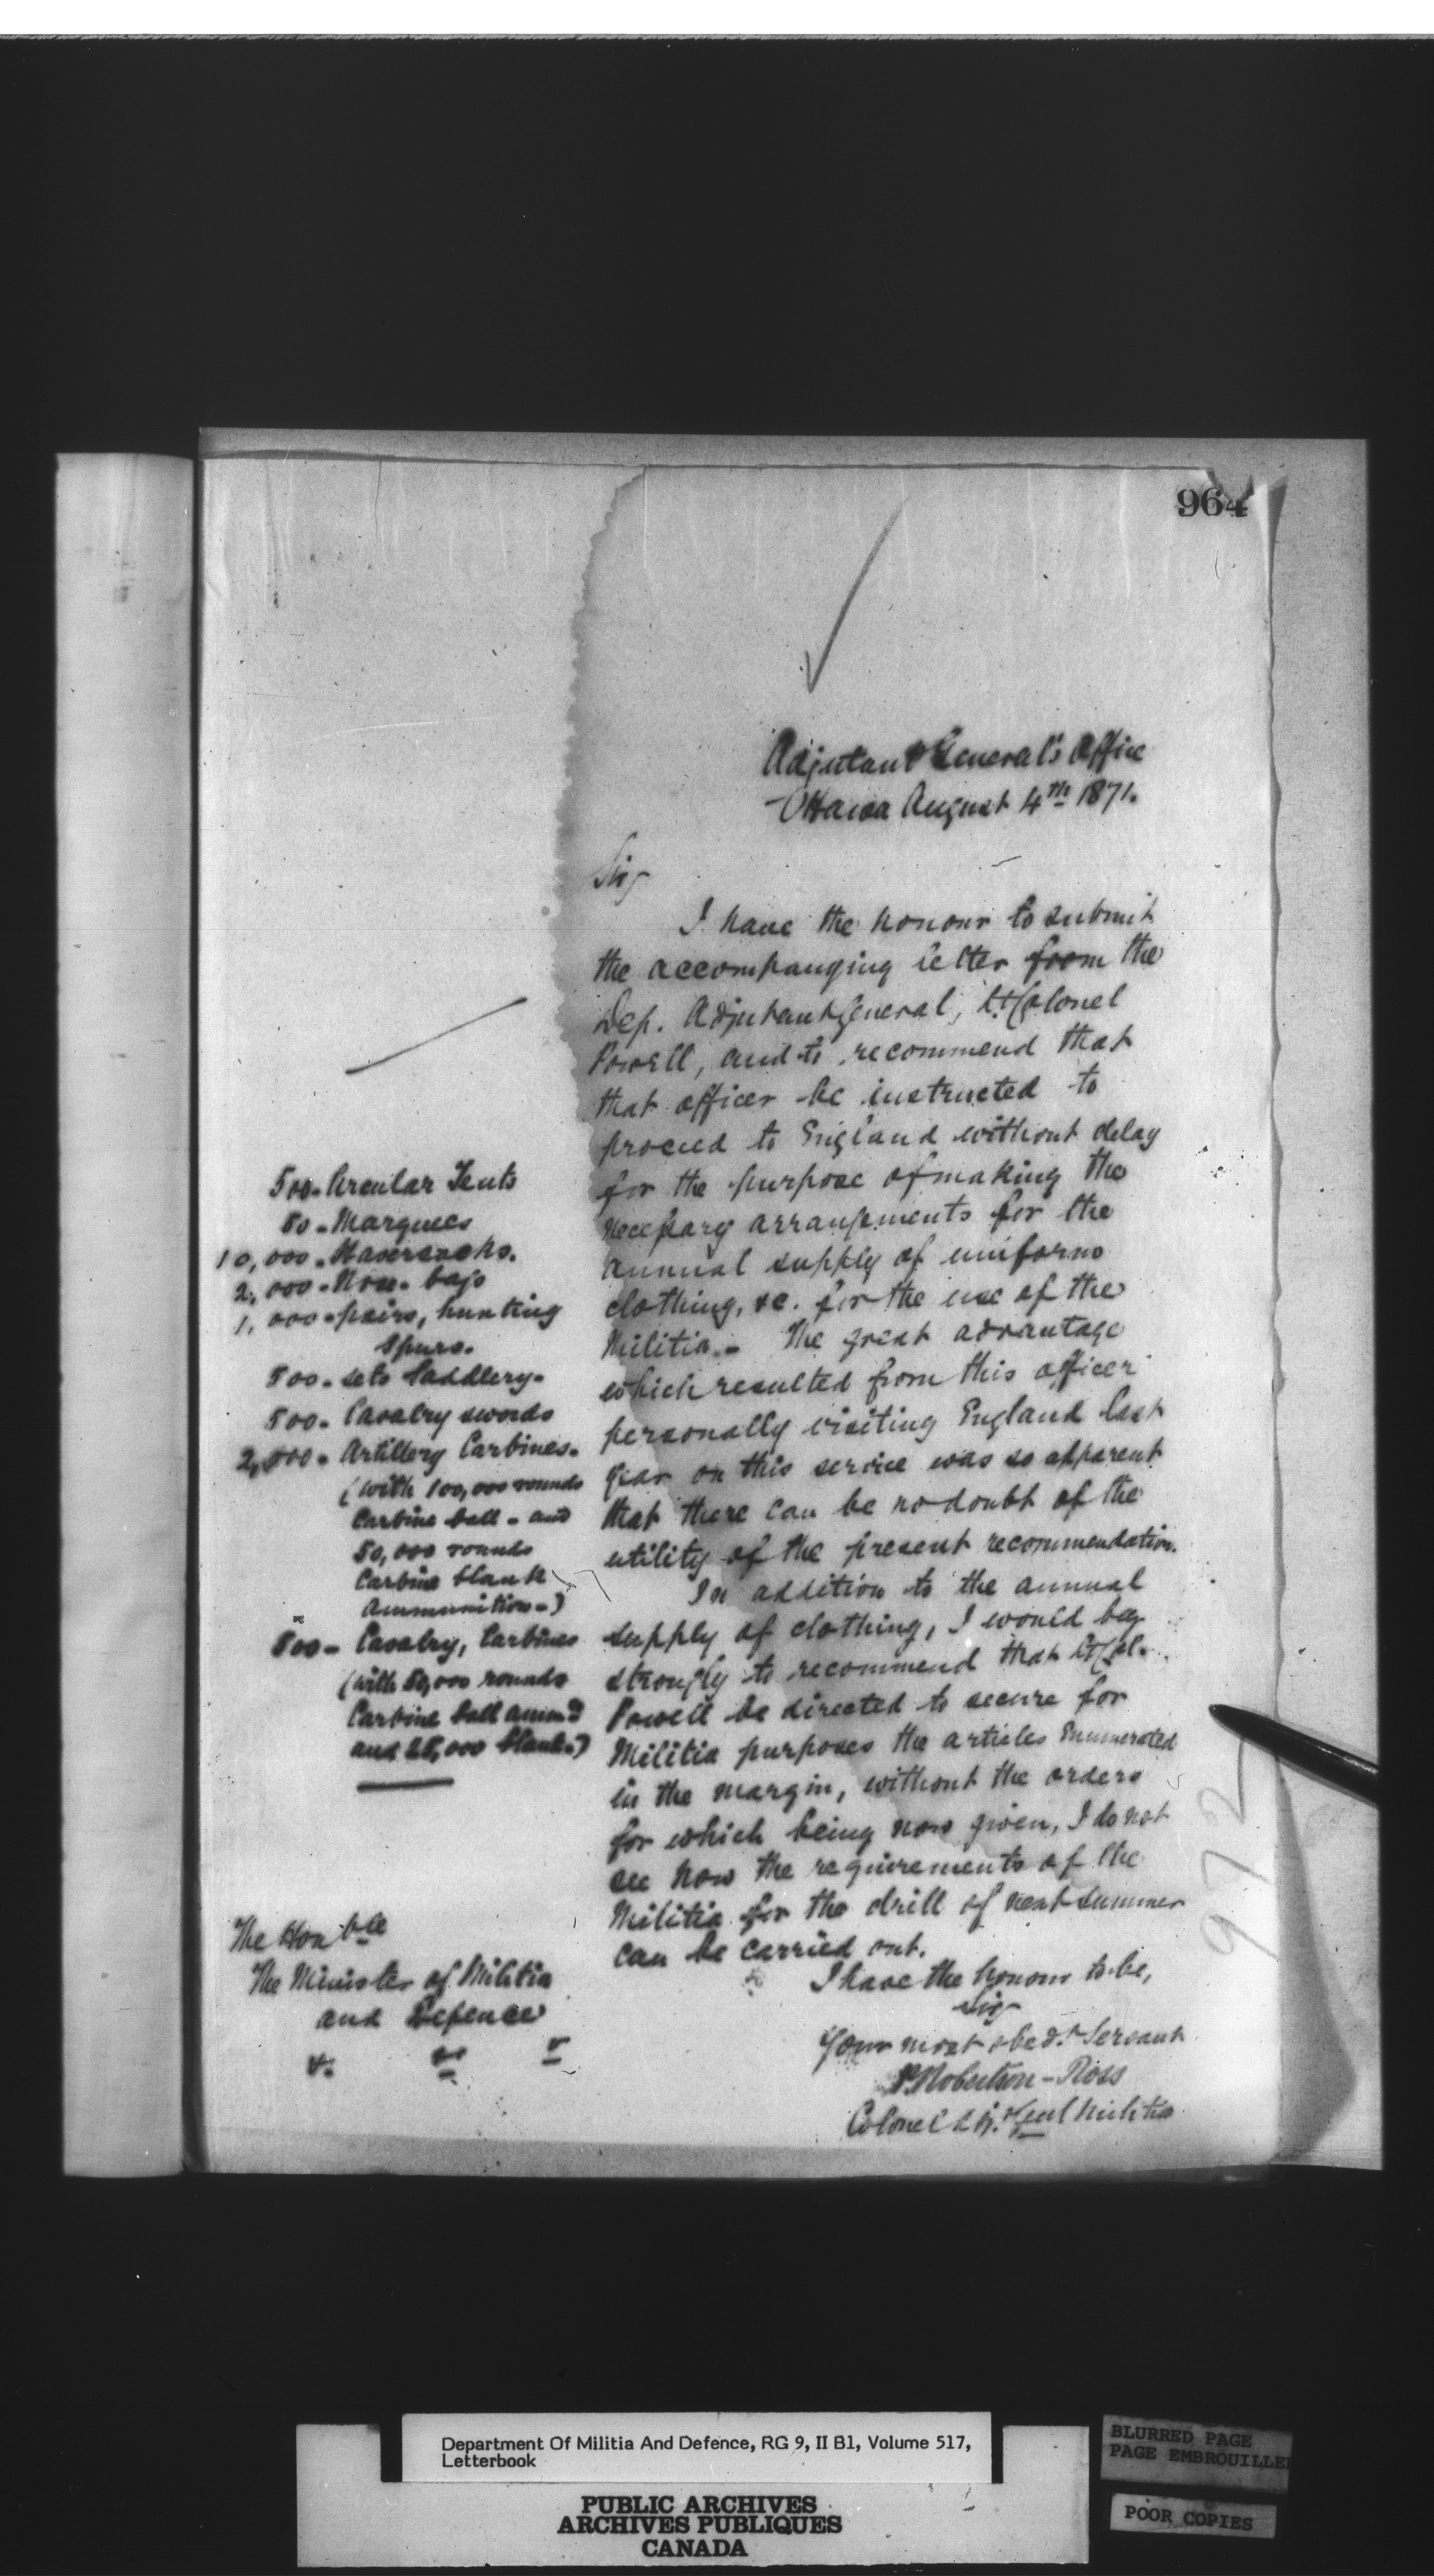 964
Adjutant General's Office
Ottawa August 4th 1871.
Sir
I have the honour to submit
the accompanying letter from the
Dep. Adjutant General, Lt Colonel
Powell, and to recommend that
that officer be instructed to
proceed to England without delay
for the purpose of making the
necessary arrangements for the
annual supply of uniform
clothing, &c. for the use of the
Militia. - The great advantage
which resulted from this officer
personally visiting England last
year on this service was so apparent
that there can be no doubt of the
utility of the present recommendation.
In addition to the annual
supply of clothing, I would beg
strongly to recommend that Lt Col.
Powell be directed to secure for
Militia purposes the articles Enumerated
in the margin, without the orders
for which being now given, I do not
see how the requirements of the
Militia for the drill of next summer
can be carried out.
I have the honour to be,
Sir
Your most obedt Servant
P. Robertson-Ross
Colonel & Genl Militia
500 - Circular Tents
50 - Marquees
10,000 - Haversacks.
2,000 - Nose - bags
1,000 - pairs, hunting
Spurs.
500 - sets Saddlery -
500 - Cavalry swords
2,000 - Artillery Carbines -
(with 100,000 rounds
Carbine ball - and
50,000 rounds
Carbine blank
Ammunition -)
500 - Cavalry, Carbines
(with 50,000 rounds
Carbine ball ammn
and 25,000 blank -)
The Honble
The Minister of Militia
and Defence
972
Department Of Militia And Defence, RG 9, II B1, Volume 517,
Letterbook
PUBLIC ARCHIVES
ARCHIVES PUBLIQUES
CANADA
BLURRED PAGE
PAGE EMBROUILLE
POOR COPIES